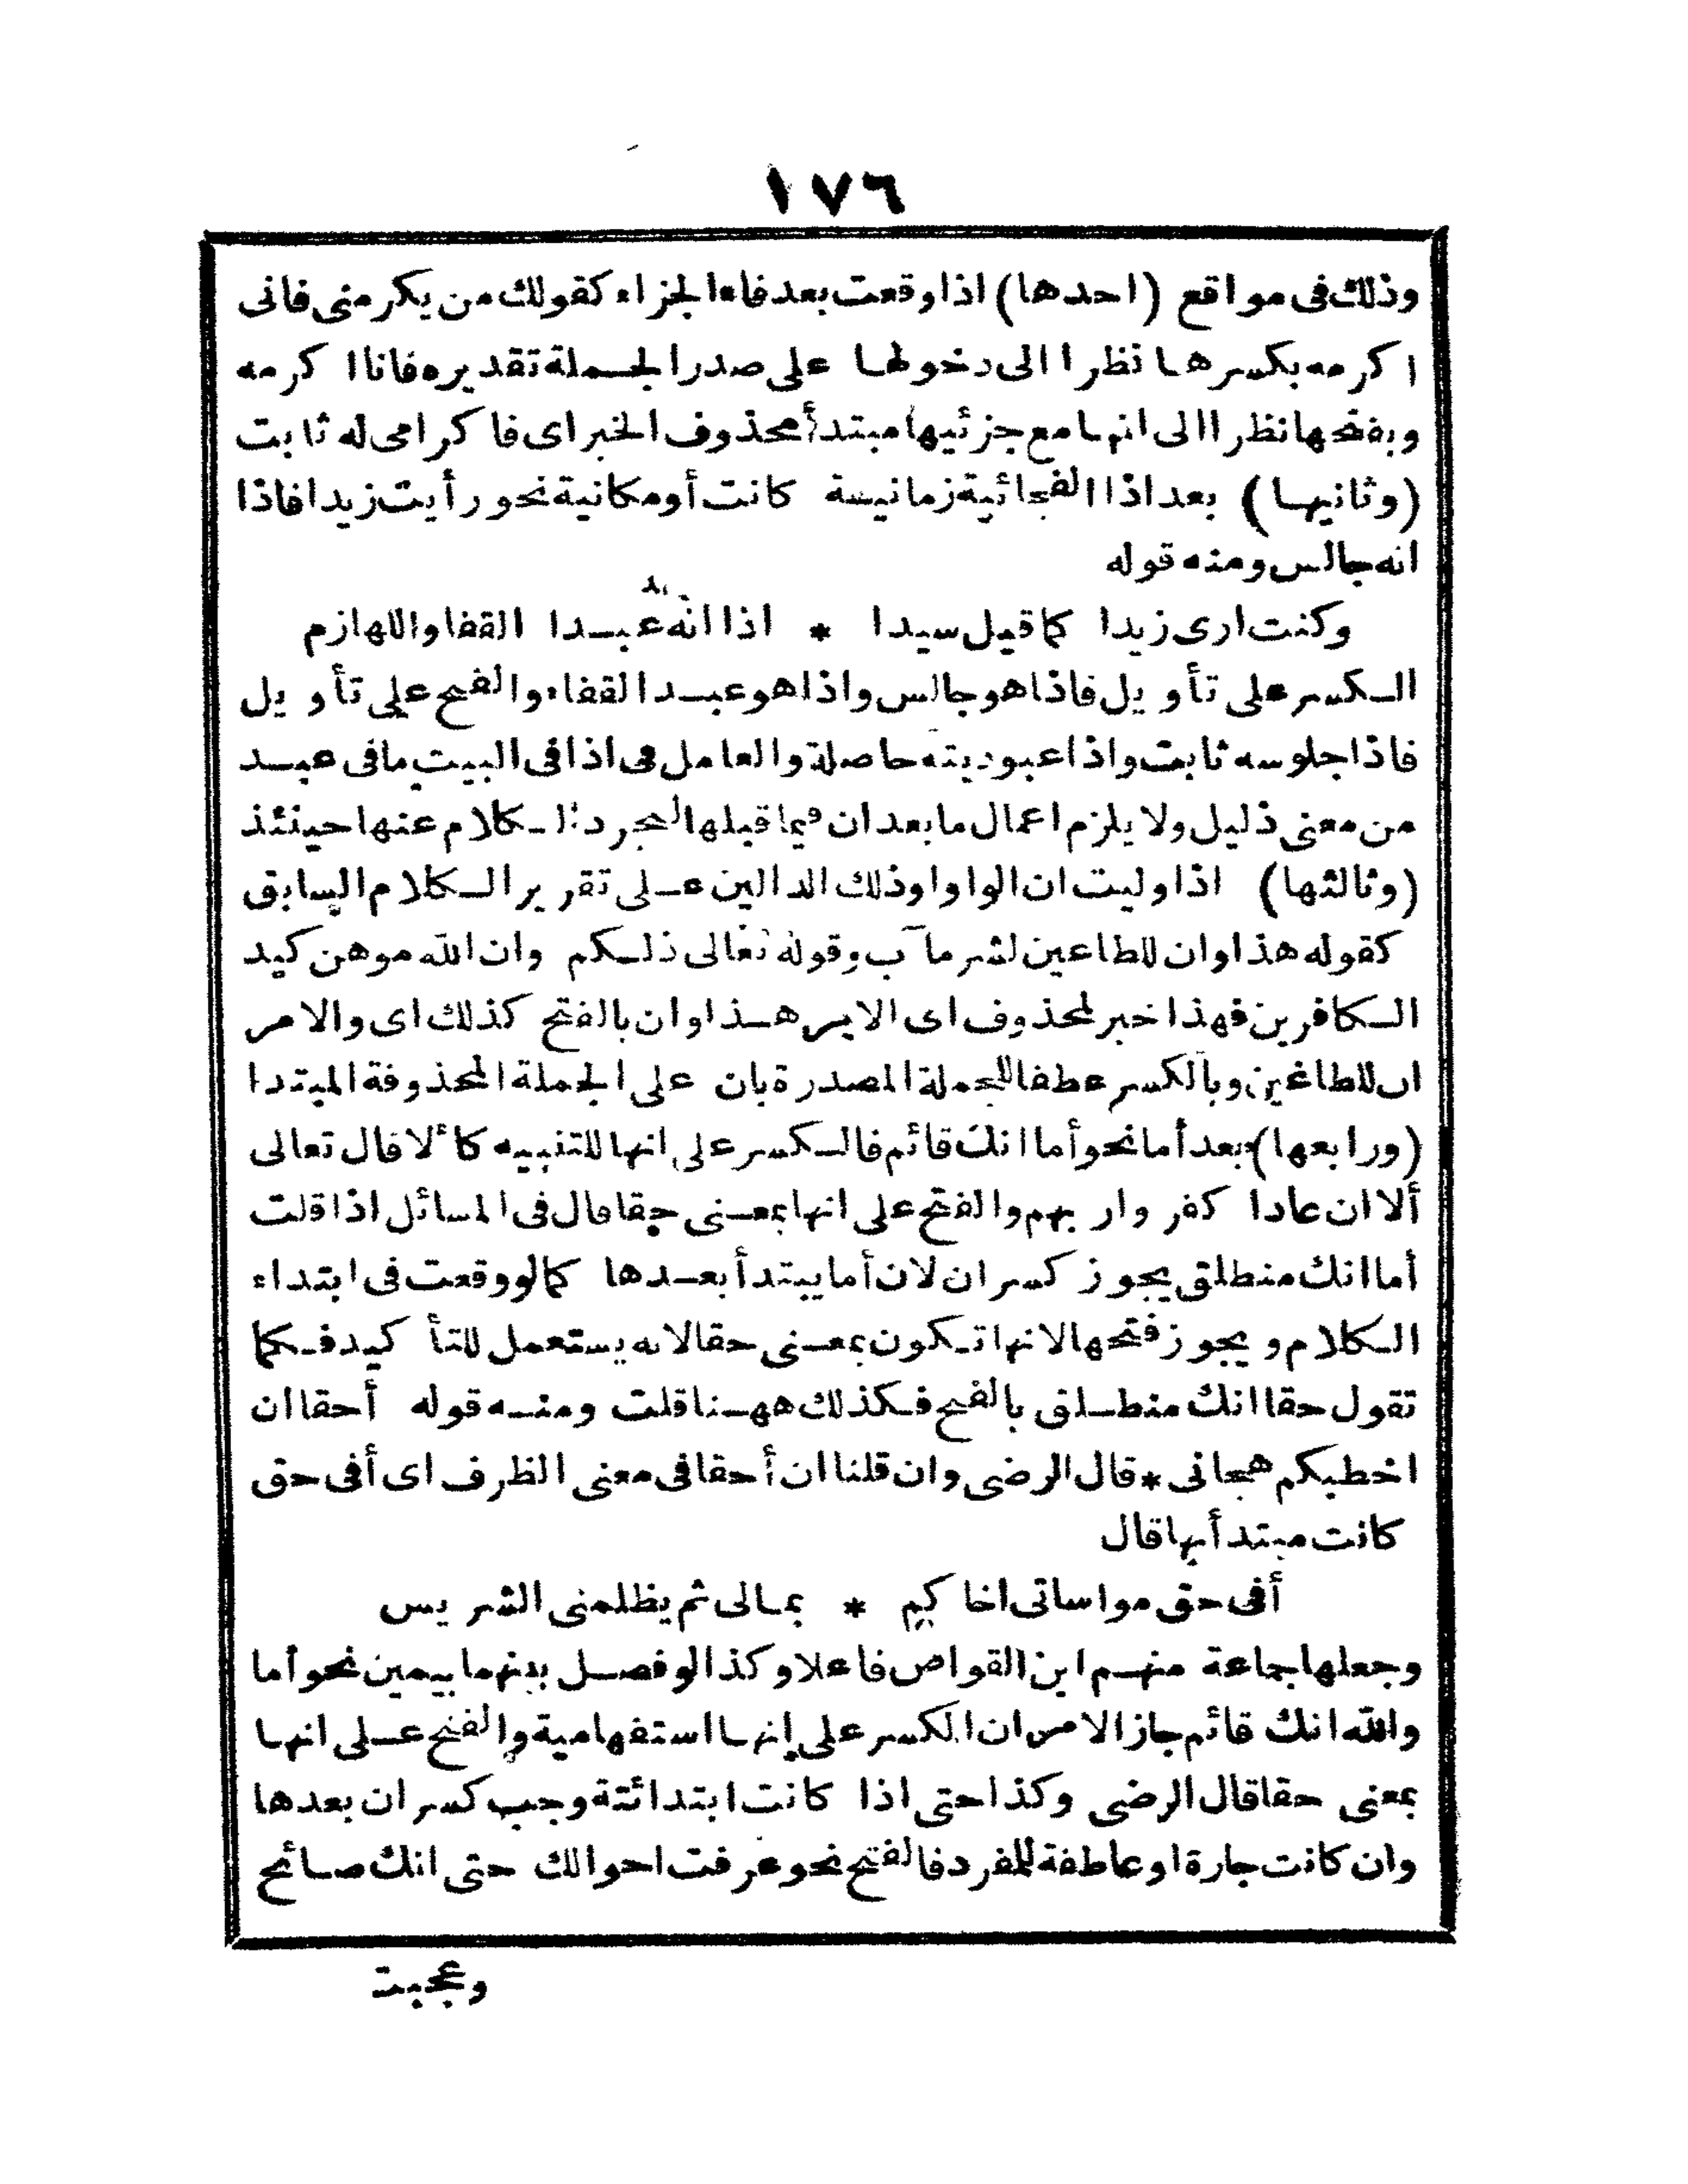 ١٧٦
وذلك فى مواقع (احدها) اذا وقعت بعد فاء الجزاء كقولك من يكرمنى فانى
اكرمه بكسرها نظرا الى دخولها على صدر الجملة تقديره فانا اكرمه
وبفتحها نظرا الى انها مع جزئيها مبتدأ محذوف الخبر اى فاكرامى له ثابت
(وثانيها) بعد اذا الفجائية زمانية كانت أو مكانية نحو رأيت زيدا فاذا
انه جالس ومنه قوله
وكنت ارى زيدا كما قيل سيدا * اذا انه عبدا القفا واللهازم
الكسر على تأويل فاذا هو جالس واذا هو عبد القفاء والفتح على تأويل
فاذا جلوسه ثابت واذا عبوديته حاصلة والعامل فى اذا فى البيت ما فى عبد
من معنى ذليل ولا يلزم اعمال ما بعد ان فيما قبلها لتجرد الكلام عنها حينئذ
(وثالثها) اذا وليت ان الواو وذلك الدالين على تقرير الكلام السابق
كقوله هذا وان للطاغين لشر مآب وقوله تعالى ذلكم وان الله موهن كيد
الكافرين فهذا خبر لمحذوف اى الامر هذا وان بالفتح كذلك اى والامر
ان للطاغين وبالكسر عطفا للجملة المصدرة بان على الجملة المحذوفة المبتدا
(ورابعها) بعد أما نحو أما انك قائم فالكسر على انها للتنبيه كألا قال تعالى
ألا ان عادا كفروا ربهم والفتح على انها بمعنى حقا قال فى المسائل اذا قلت
أما انك منطلق يجوز كسر ان لان أما يبتدأ بعدها كما لو وقعت فى ابتداء
الكلام ويجوز فتحها لانها تكون بمعنى حقا لانه يستعمل للتأكيد فكما
تقول حقا انك منطلق بالفتح فكذلك ههنا قلت ومنه قوله أحقا ان
اخطبكم هجانى * قال الرضى وان قلنا ان أحقا فى معنى الظرف اى أفى حق
كانت مبتدأ بها قال
أفى حق مواساتى اخاكم * بمالى ثم يظلمنى الشريس
وجعلها جماعة منهم ابن القواص فاعلا وكذا لو فصل بينهما بيمين نحو أما
والله انك قائم جاز الامران الكسر على انها استفهامية والفتح على انها
بمعنى حقا قال الرضى وكذا حتى اذا كانت ابتدائتة وجب كسر ان بعدها
وان كانت جارة او عاطفة للمفرد فالفتح نحو عرفت احوالك حتى انك صائح
وعجبت